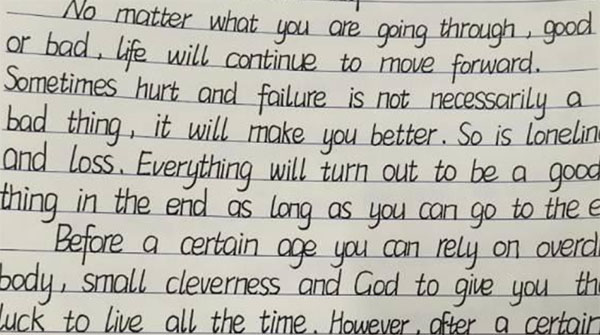 No matter what you are going through, good
or bad, life will continue to move forward.
Sometimes hurt and failure is not necessarily a
bad thing, it will make you better. So is lonelin
and loss. Everything will turn out to be a good
thing in the end as long as you can go to the e
Before a certain age you can rely on overd
body, small cleverness and God to give you th
luck to live all the time. However, after a certain